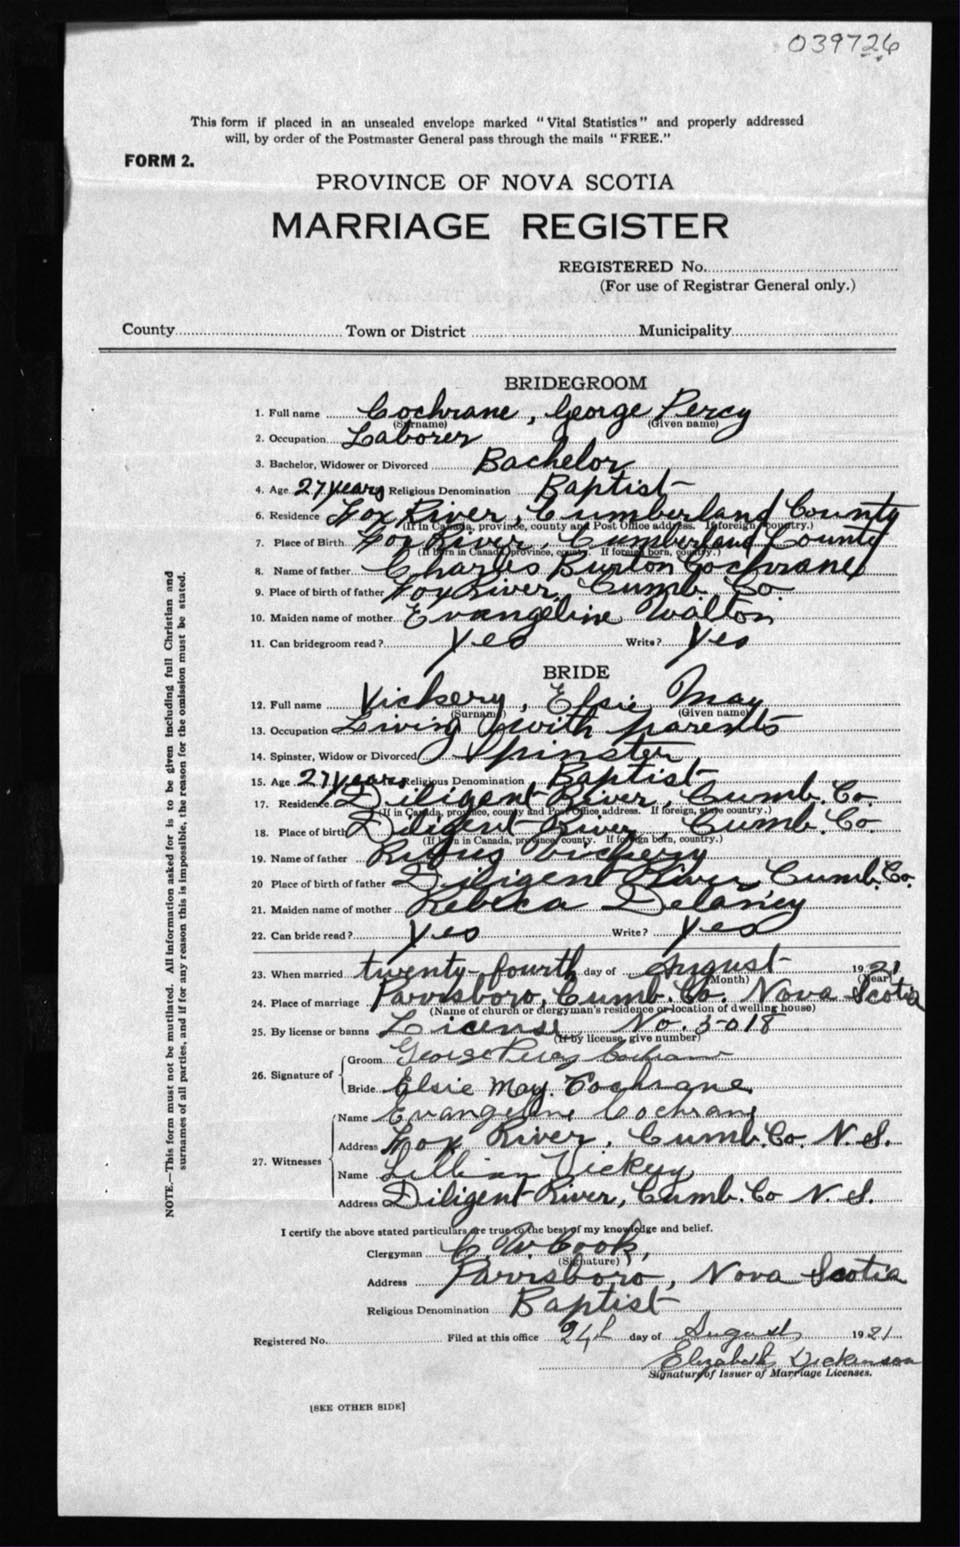 039726
This form if placed in an unsealed envelope marked "Vital Statistics" and properly addressed
will, by order of the Postmaster General pass through the mails "FREE."
FORM 2.
PROVINCE OF NOVA SCOTIA
MARRIAGE REGISTER
REGISTERED No.
(For use of Registrar General only.)
County Town or District Municipality
BRIDEGROOM
1. Full name Cochrane, George Percy
(Surname) (Given name)
2. Occupation Laborer
3. Bachelor, Widower or Divorced Bachelor
4. Age 27 years Religious Denomination Baptist
6. Residence Fox River, Cumberland County
(If in Canada, province, county and Post Office address. If foreign, country.)
7. Place of Birth Fox River, Cumberland County
(If born in Canada, province, county. If foreign born, country.)
8. Name of father Charles Burton Cochrane
9. Place of birth of father Fox River, Cumb. Co.
10. Maiden name of mother Evangeline Walton
11. Can bridegroom read? Yes Write? Yes
BRIDE
12. Full name Vickery, Elsie May
(Surname) (Given name)
13. Occupation Living with parents
14. Spinster, Widow or Divorced Spinster
15. Age 27 years Religious Denomination Baptist
17. Residence Diligent River, Cumb. Co.
(If in Canada, province, county and Post Office address. If foreign, state country.)
18. Place of birth Diligent River, Cumb. Co.
(If born in Canada, province, county. If foreign born, country.)
19. Name of father Rufus Vickery
20 Place of birth of father Diligent River, Cumb. Co.
21. Maiden name of mother Rebeca Delaney
22. Can bride read? Yes Write? Yes
23. When married twenty-fourth day of August 1921
(Month) (Year)
24. Place of marriage Parrsboro, Cumb. Co. Nova Scotia
(Name of church or clergyman's residence or location of dwelling house)
25. By license or banns License, No. 5018
(If by license, give number)
26. Signature of Groom George Percy Cochrane
Bride Elsie May Cochrane
27. Witnesses Name Evangeline Cochrane
Address Fox River, Cumb. Co. N. S.
Name Lillian Vickery
Address Diligent River, Cumb. Co N. S.
I certify the above stated particulars are true to the best of my knowledge and belief.
Clergyman C. W. Cook,
(Signature)
Address Parrsboro, Nova Scotia
Religious Denomination Baptist
Registered No. Filed at this office 24th day of August 1921
Elizabeth Dickinson
Signature of Issuer of Marriage Licenses.
[SEE OTHER SIDE]
NOTE.—This form must not be mutilated. All information asked for is to be given including full Christian and
surnames of all parties, and if for any reason this is impossible, the reason for the omission must be stated.